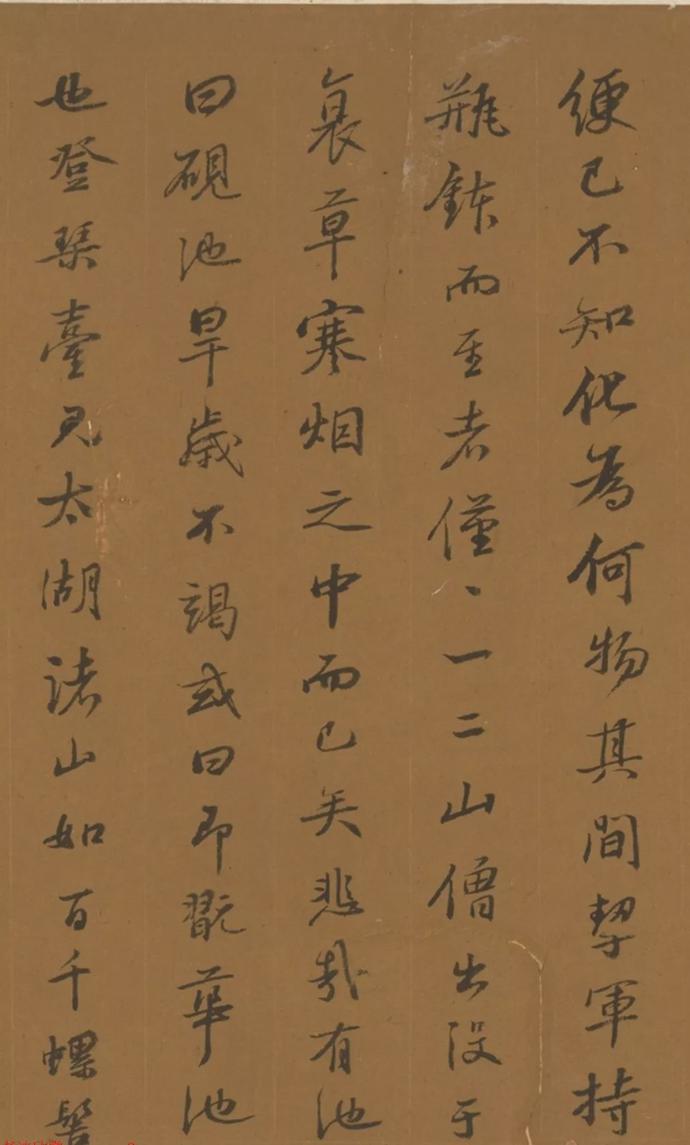 便已不知化為何物其間挈軍持
瓶鉢而至者僅〻一二山僧出没于
衰草寒烟之中而已矣悲哉有池
曰硯池旱歳不竭或曰即翫華池
也登琴臺見太湖諸山如百千螺髻